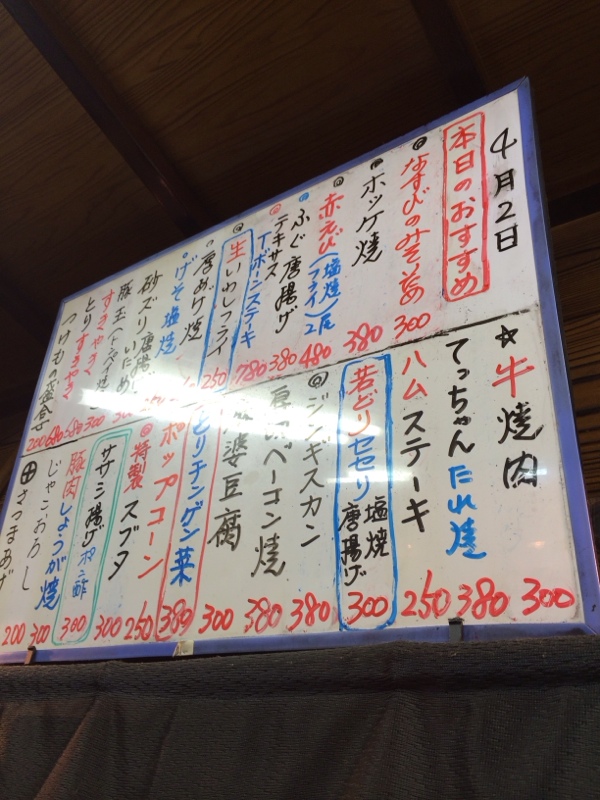 4月2日
本日のおすすめ
なすびのみそ炒め 300
ホッケ焼 380
赤えび(塩焼 フライ)2尾 480
ふぐ唐揚げ 380
テキサス Tボーンステーキ 780
生いわしフライ 250
厚あげ焼
げそ塩焼
砂ズリ(唐揚げ いため)
豚玉
すきやき 300
とりすきやき
つけもの盛合 200
☆牛焼肉 300
てっちゃんたれ焼 380
ハムステーキ 250
若どりセセリ 塩焼 唐揚げ 300
ジンギスカン 380
厚切ベーコン焼 380
麻婆豆腐 300
とりチンゲン菜 380
ポップコーン 250
特製スブタ 300
ササミ揚げポン酢 300
豚肉しょうが焼 300
じゃこおろし 200
さつまあげ